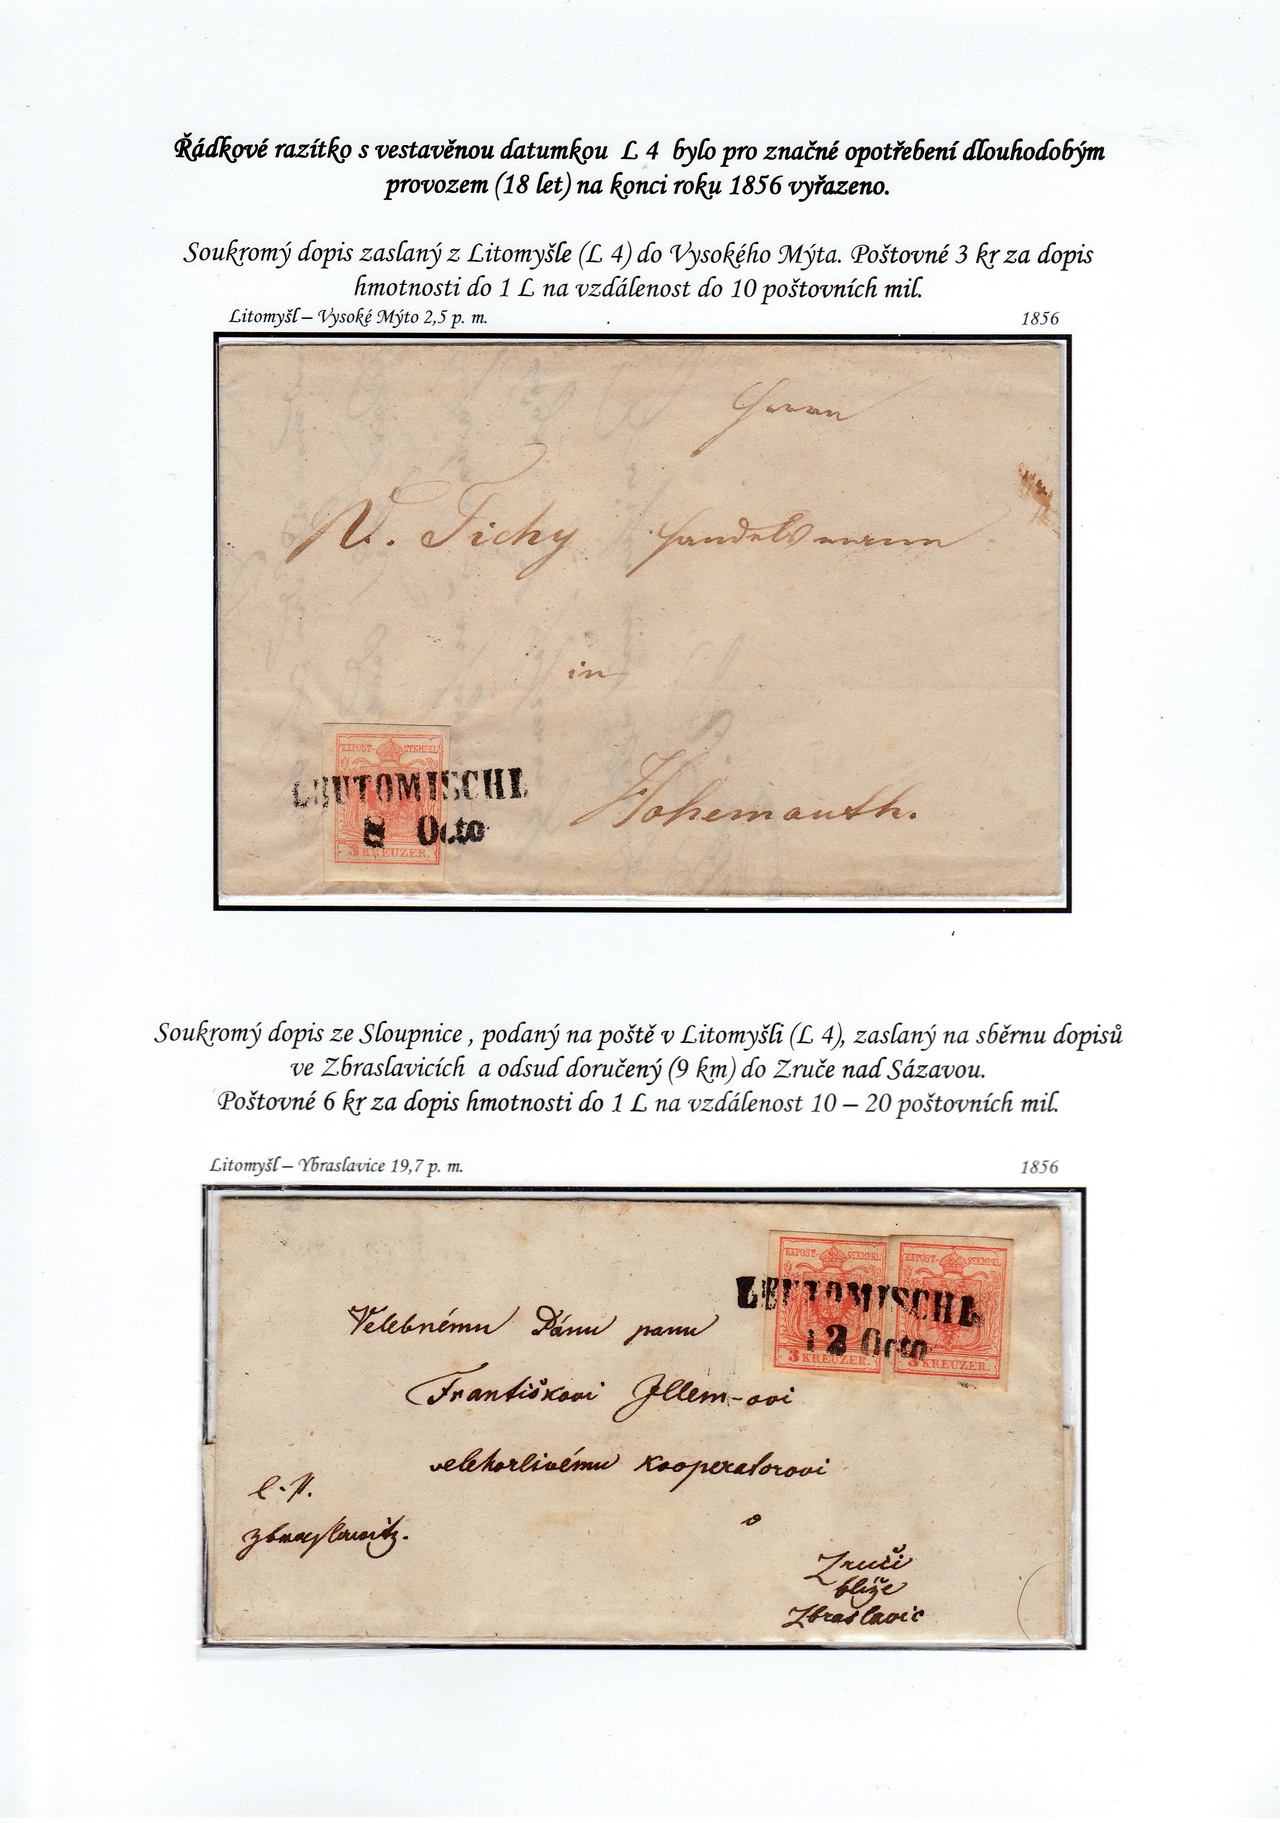 Řádkové razítko s vestavěnou datumkou L 4 bylo pro značné opotřebení dlouhodobým
provozem (18 let) na konci roku 1856 vyřazeno.
Soukromý dopis zaslaný z Litomyšle (L 4) do Vysokého Mýta. Poštovné 3 kr za dopis
hmotnosti do 1 L na vzdálenost do 10 poštovních mil.
Litomyšl – Vysoké Mýto 2,5 p. m. 1856
Herrn
W. Tichy Handelsmann
in
KKPOST-STEMPEL
LEUTOMISCHL
8 Octo
3 KREUZER.
Hohenmauth.
Soukromý dopis ze Sloupnice , podaný na poště v Litomyšli (L 4), zaslaný na sběrnu dopisů
ve Zbraslavicích a odsud doručený (9 km) do Zruče nad Sázavou.
Poštovné 6 kr za dopis hmotnosti do 1 L na vzdálenost 10 – 20 poštovních mil.
Litomyšl – Ybraslavice 19,7 p. m. 1856
KKPOST-STEMPEL KKPOST-STEMPEL
LEUTOMISCHL
12 Octo
3 KREUZER. 3 KREUZER.
Velebnému Pánu panu
Františkovi Jllem-ovi
velehorlivému kooperatorovi
l. P.
Zbraslawitz.
v
Zruči
blíže
Zbraslavic